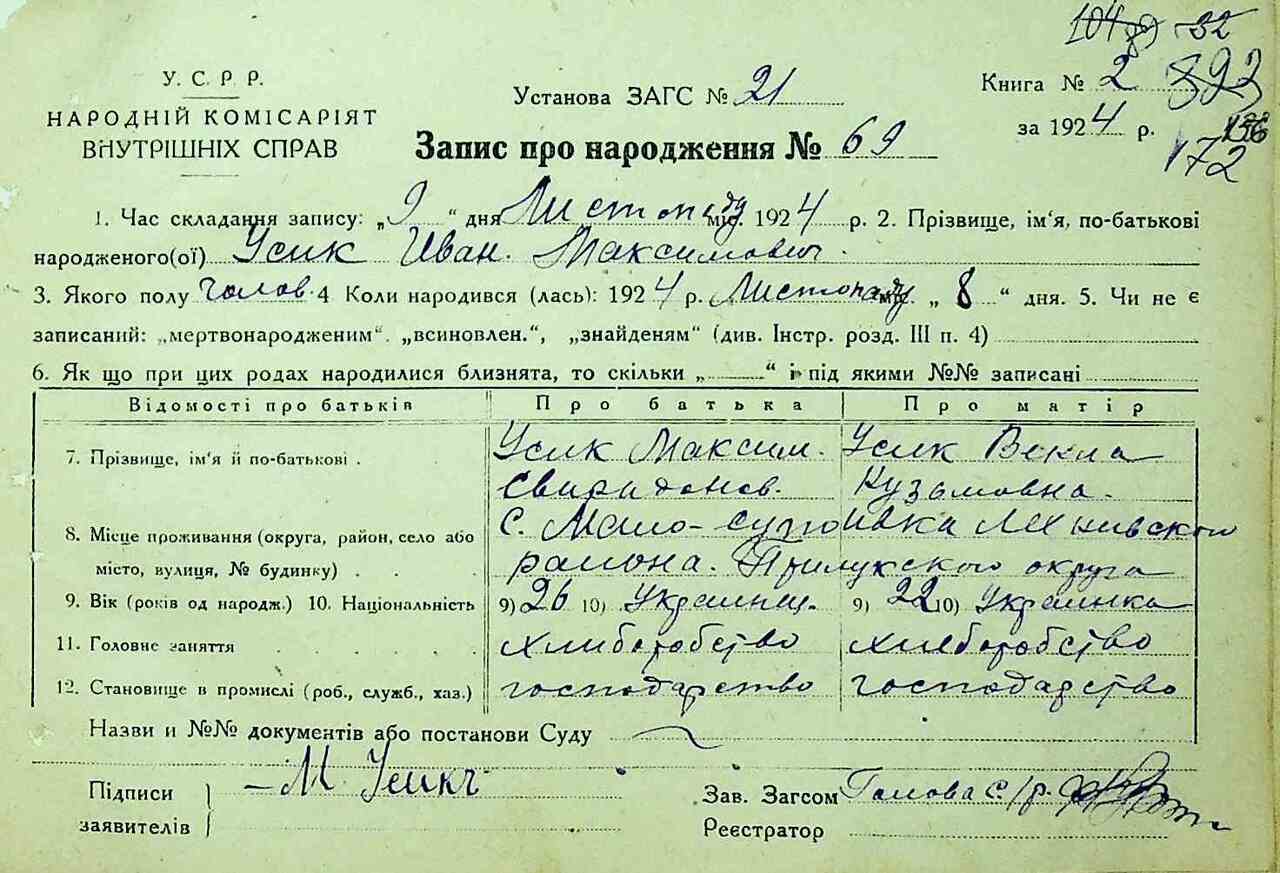 104 32
У. С. Р. Р.
НАРОДНІЙ КОМІСАРІЯТ
ВНУТРІШНІХ СПРАВ
Установа ЗАГС № 21
Книга № 2 892
за 1924 р.
172
Запис про народження № 69
1. Час складання запису: „9“ дня Листопаду міс. 1924 р. 2. Прізвище, ім'я, по-батькові
народженого(ої) Усик Иван. Максимович.
3. Якого полу Чолов. 4 Коли народився (лась): 1924 р. Листопаду міс. „8“ дня. 5. Чи не є
записаний: „мертвонародженим“. „всиновлен.“, „знайденям“ (див. Інстр. розд. III п. 4)
6. Як що при цих родах народилися близнята, то скільки „ “ і під якими №№ записані
Відомості про батьків Про батька Про матір
7. Прізвище, ім'я й по-батькові . Усик Максим. Усик Векла
Свиридонов. Кузьмовна.
8. Місце проживання (округа, район, село або С. Мало-супоивка
місто, вулиця, № будинку) . . . района. Прилукского округа
9. Вік (років од народж.) 10. Національність 9) 26 10) Украинц. 9) 22 10) Украинка
11. Головне заняття Хлиборобство Хлеборобство
12. Становище в промислі (роб., служб., хаз.) господарство господарство
Назви и №№ документів або постанови Суду
Підписи
заявителів
М Усикъ
Зав. Загсом Голова с/р.
Реєстратор